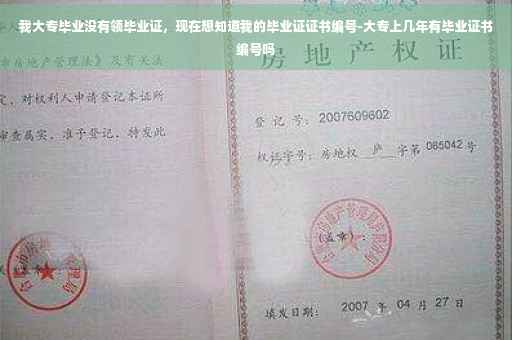 我大专毕业没有领毕业证，现在想知道我的毕业证证书编号-大专上几年有毕业证书
编号吗
房地产
房地产管理法》及有关法
定，对权利人申请登记本证所
审查属实，准予登记，特发此
登记号：2007609602
权证字号：房地权 庐 字第 065042 号
(盖章)：
填发日期：2007 年 04 月 27 日